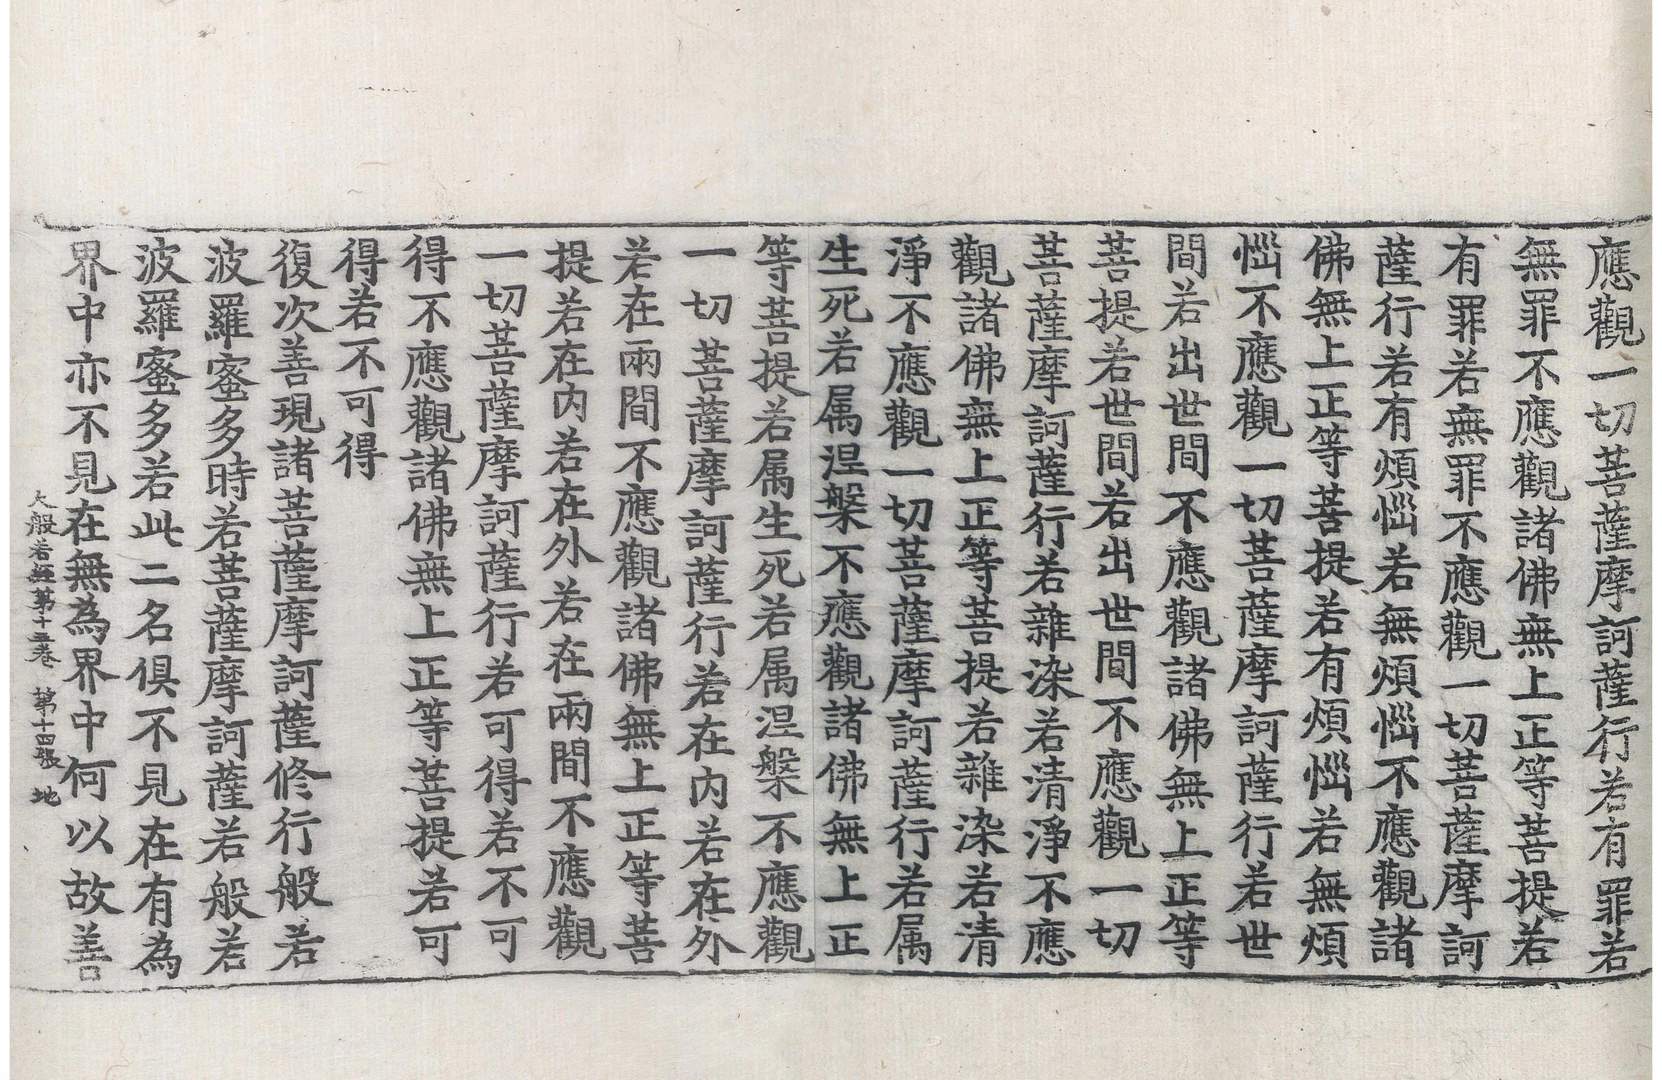 應觀一切菩薩摩訶薩行若有罪若
無罪不應觀諸佛無上正等菩提若
有罪若無罪不應觀一切菩薩摩訶
薩行若有煩惱若無煩惱不應觀諸
佛無上正等菩提若有煩惱若無煩
惱不應觀一切菩薩摩訶薩行若世
間若出世間不應觀諸佛無上正等
菩提若世間若出世間不應觀一切
菩薩摩訶薩行若雜染若清淨不應
觀諸佛無上正等菩提若雜染若清
淨不應觀一切菩薩摩訶薩行若属
生死若属涅槃不應觀諸佛無上正
等菩提若属生死若属涅槃不應觀
一切菩薩摩訶薩行若在內若在外
若在兩間不應觀諸佛無上正等菩
提若在內若在外若在兩間不應觀
一切菩薩摩訶薩行若可得若不可
得不應觀諸佛無上正等菩提若可
得若不可得
復次善現諸菩薩摩訶薩修行般若
波羅蜜多時若菩薩摩訶薩若般若
波羅蜜多若此二名俱不見在有為
界中亦不見在無為界中何以故善
大般若經第十五卷 第十四張 地